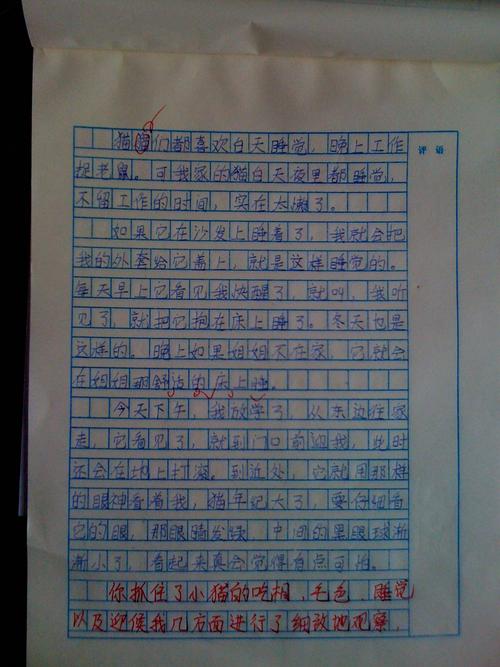 猫们都喜欢白天睡觉，晚上工作
评语
捉老鼠。可我家的猫白天夜里都睡觉，
不留工作的时间，实在太懒了。
如果它在沙发上睡着了，我就会把
我的外套给它盖上，就是这样睡觉的。
每天早上它看见我快醒了，就叫，我听
见了，就把它抱在床上睡了。冬天也是
这样的。晚上如果姐姐不在家，它就会
在姐姐那舒适的床上睡。
今天下午，我放学了，从东边往家
走，它看见了，就到门口前迎我，此时
还会在地上打滚。到近处，它就用那样
的眼神看着我，猫年纪大了，要仔细看
它的眼，那眼睛发绿，中间的黑眼球渐
渐小了，看起来真会觉得有点可怕。
你抓住了小猫的吃相、毛色、睡觉
以及迎候我几方面进行了细致地观察，